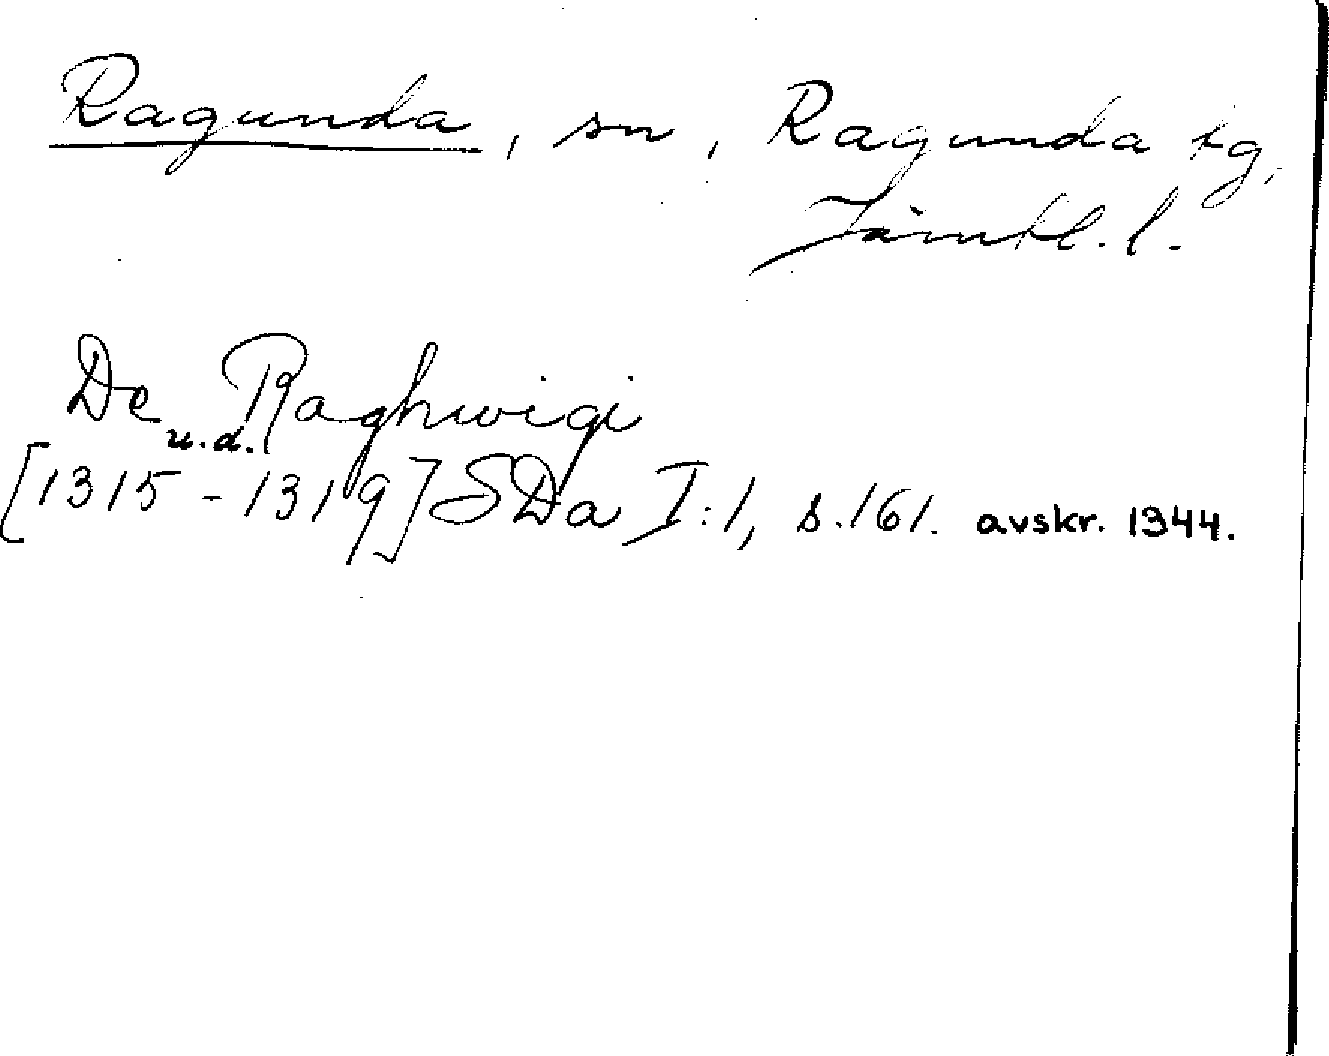 Ragunda, sn, Ragunda tg,
Jämtl. l.
De Raghwigi
u.d.
[1315-1319] SDa I:1, s.161. avskr. 1344.